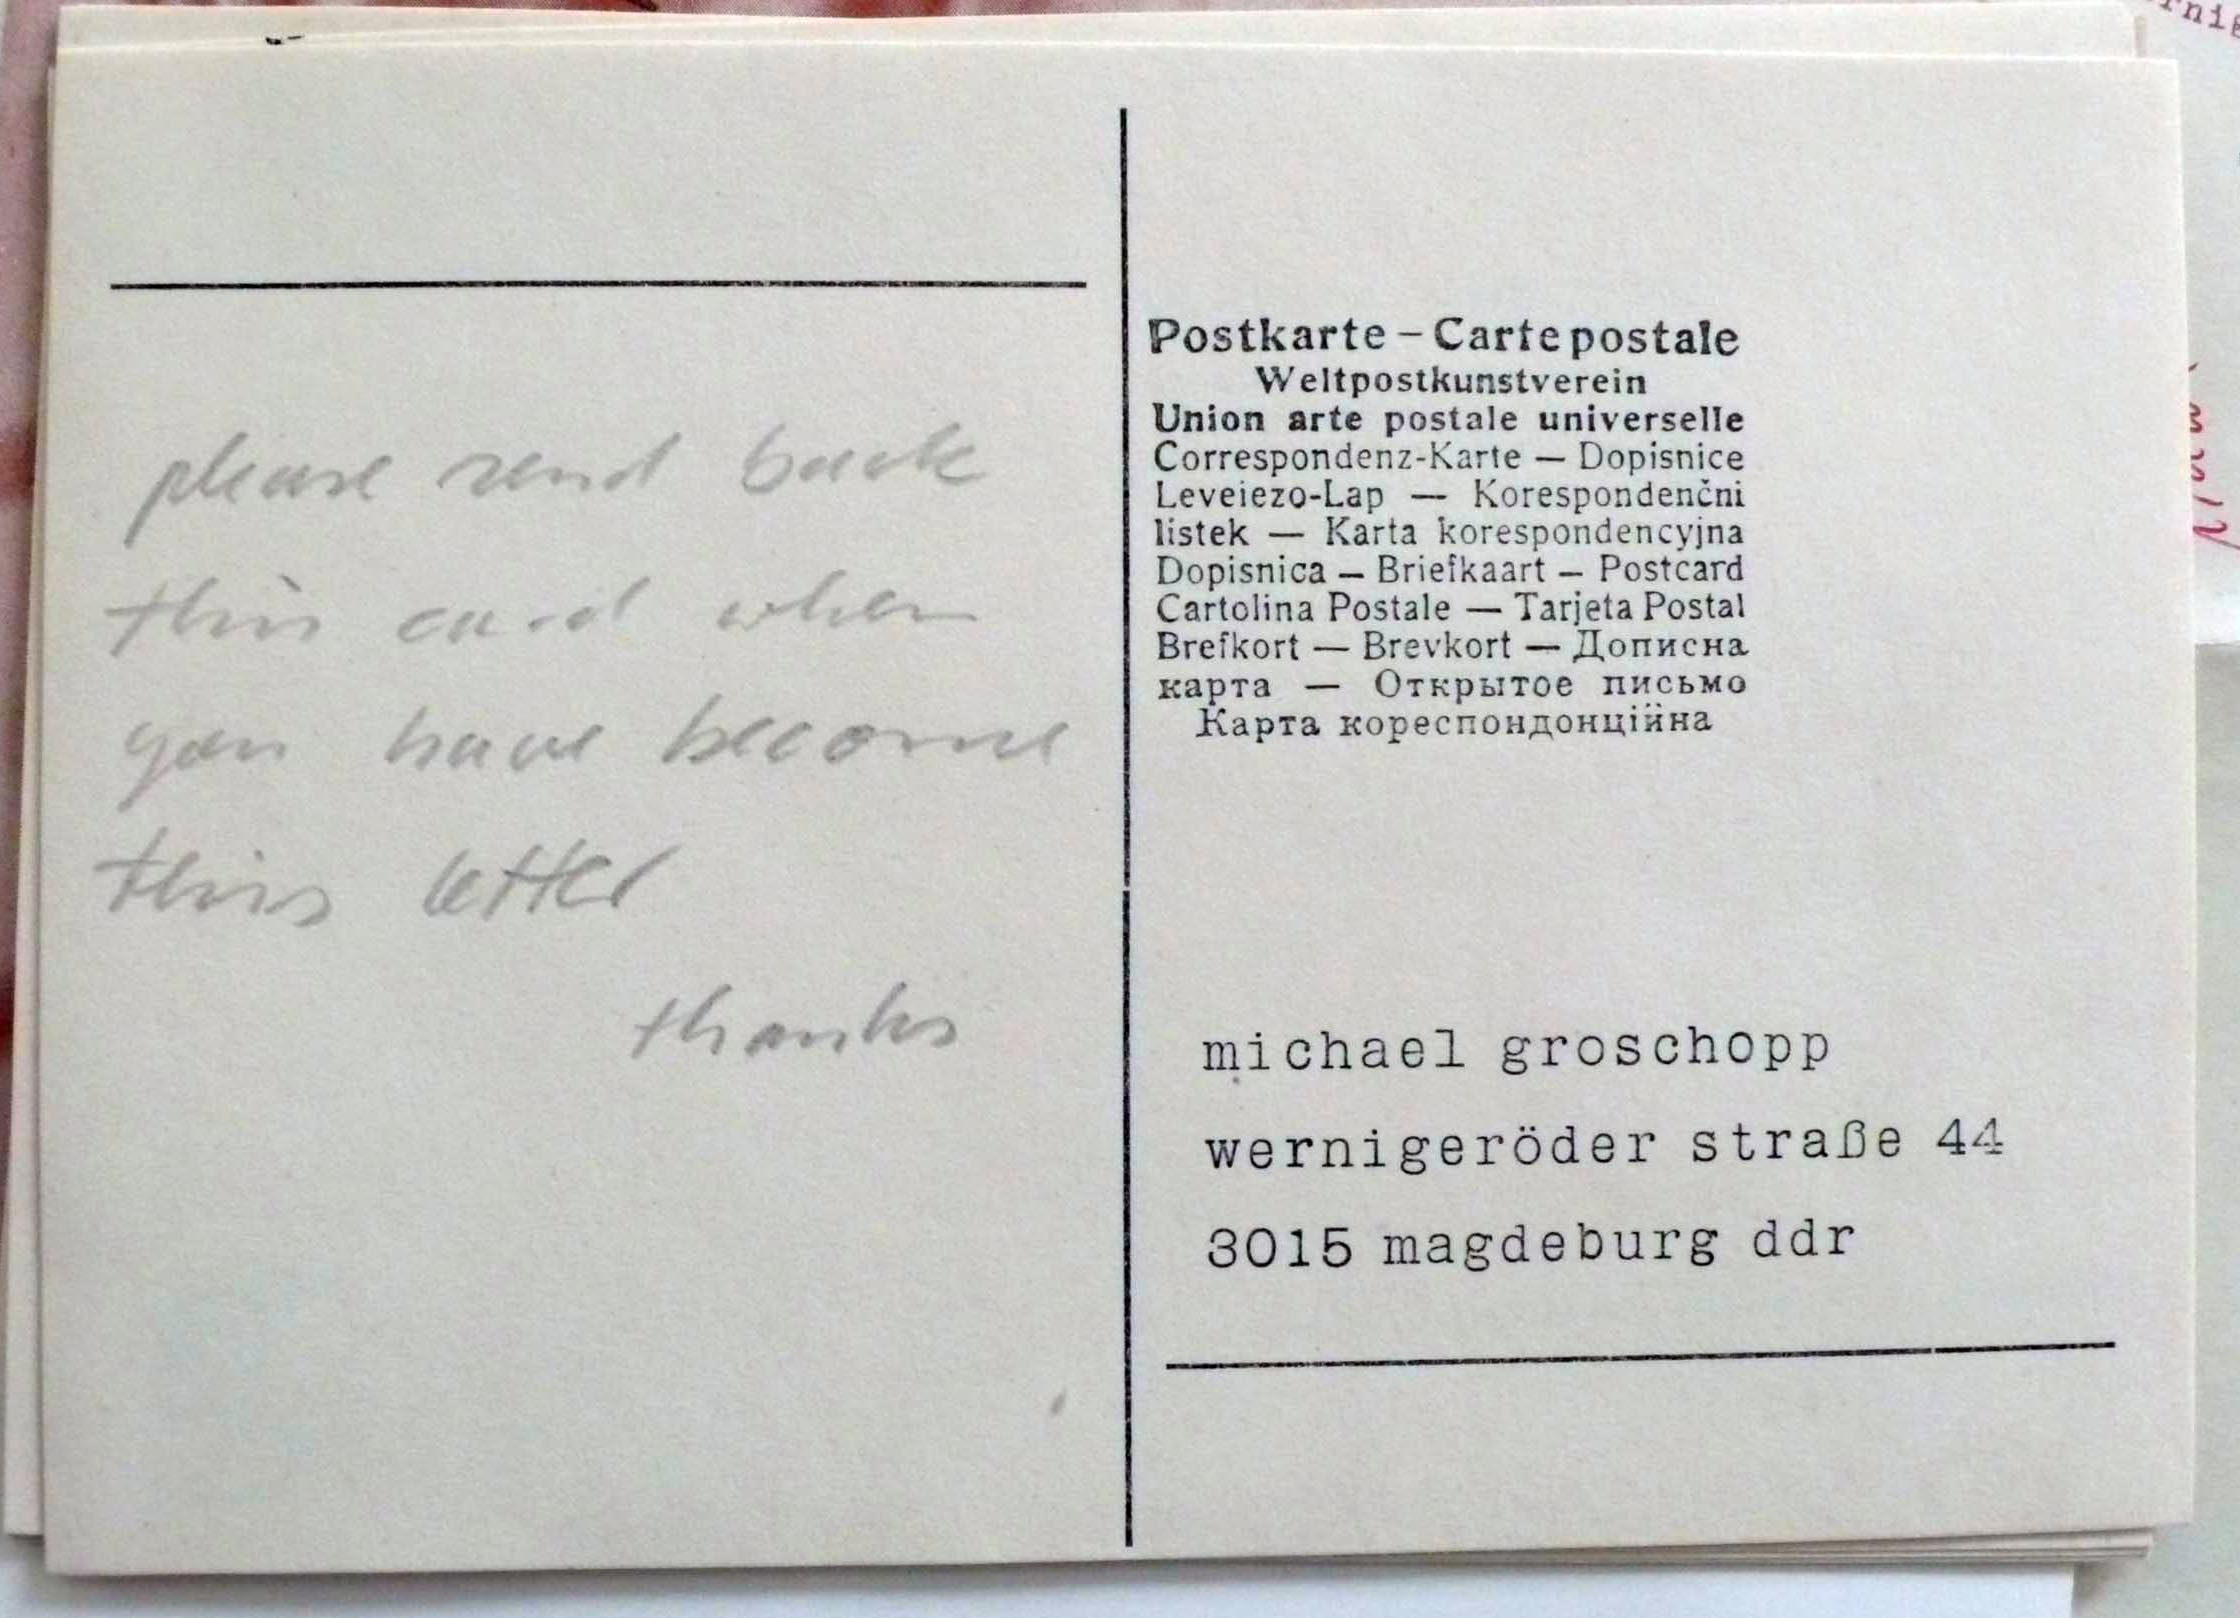 please send back
this card when
you have become
this letter
thanks
Postkarte – Carte postale
Weltpostkunstverein
Union arte postale universelle
Correspondenz-Karte — Dopisnice
Leveiezo-Lap — Korespondenčni
listek — Karta korespondencyjna
Dopisnica — Briefkaart — Postcard
Cartolina Postale — Tarjeta Postal
Brefkort — Brevkort — Дописна
карта — Открытое письмо
Карта кореспондонційна
michael groschopp
wernigeröder straße 44
3015 magdeburg ddr